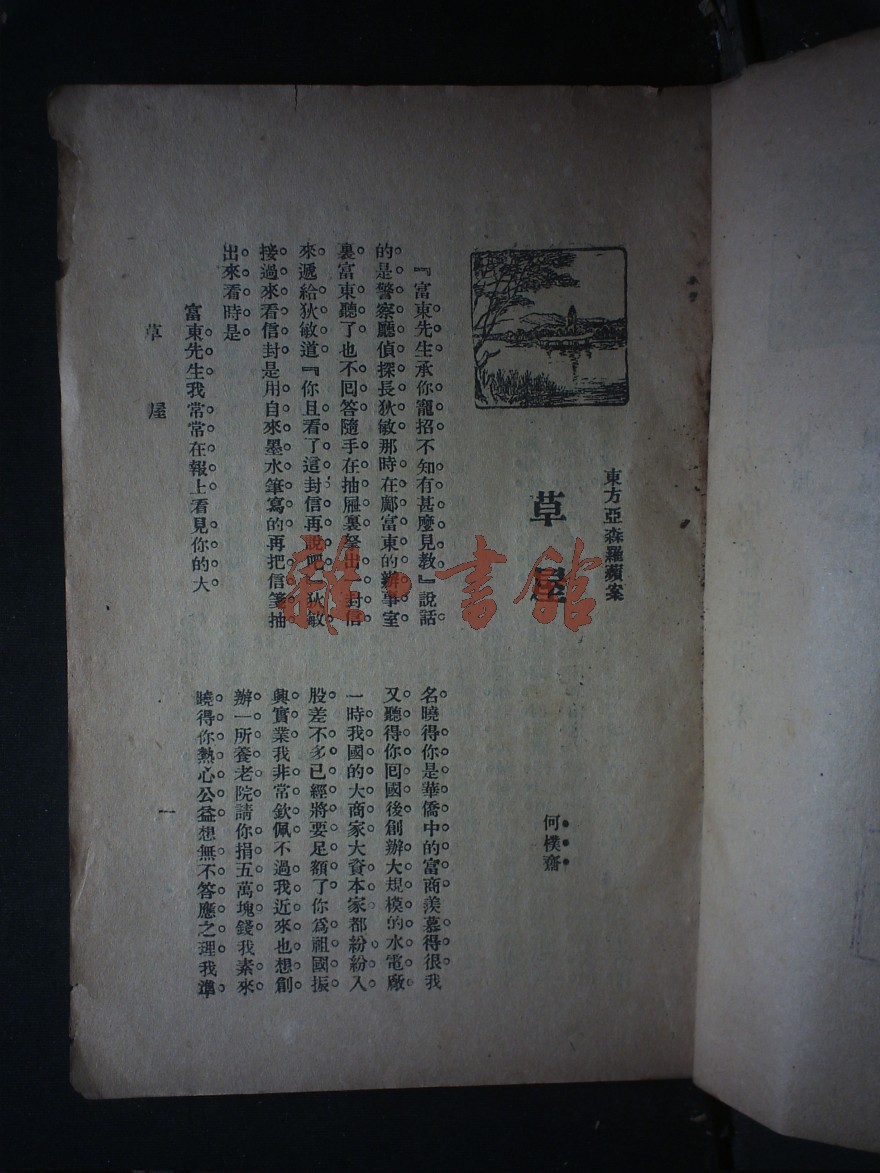 東方亞森羅蘋案
草屋
何樸齋
『富東先生承你寵招不知有甚麼見教』說話
的是警察廳偵探長狄敏那時在鄺富東的辦事室
裏富東聽了也不回答隨手在抽屜裏拏出一封信
來遞給狄敏道『你且看了這封信再說吧』狄敏
接過來看信封是用自來墨水筆寫的再把信箋抽
出來看時是
富東先生我常常在報上看見你的大
名曉得你是華僑中的富商羨慕得很我
又聽得你回國後創辦大規模的水電廠
一時我國的大商家大資本家都紛紛入
股差不多已經將要足額了你爲祖國振
興實業我非常欽佩不過我近來也想創
辦一所養老院請你捐五萬塊錢我素來
曉得你熱心公益想無不答應之理我準
草屋
一
雜·書館